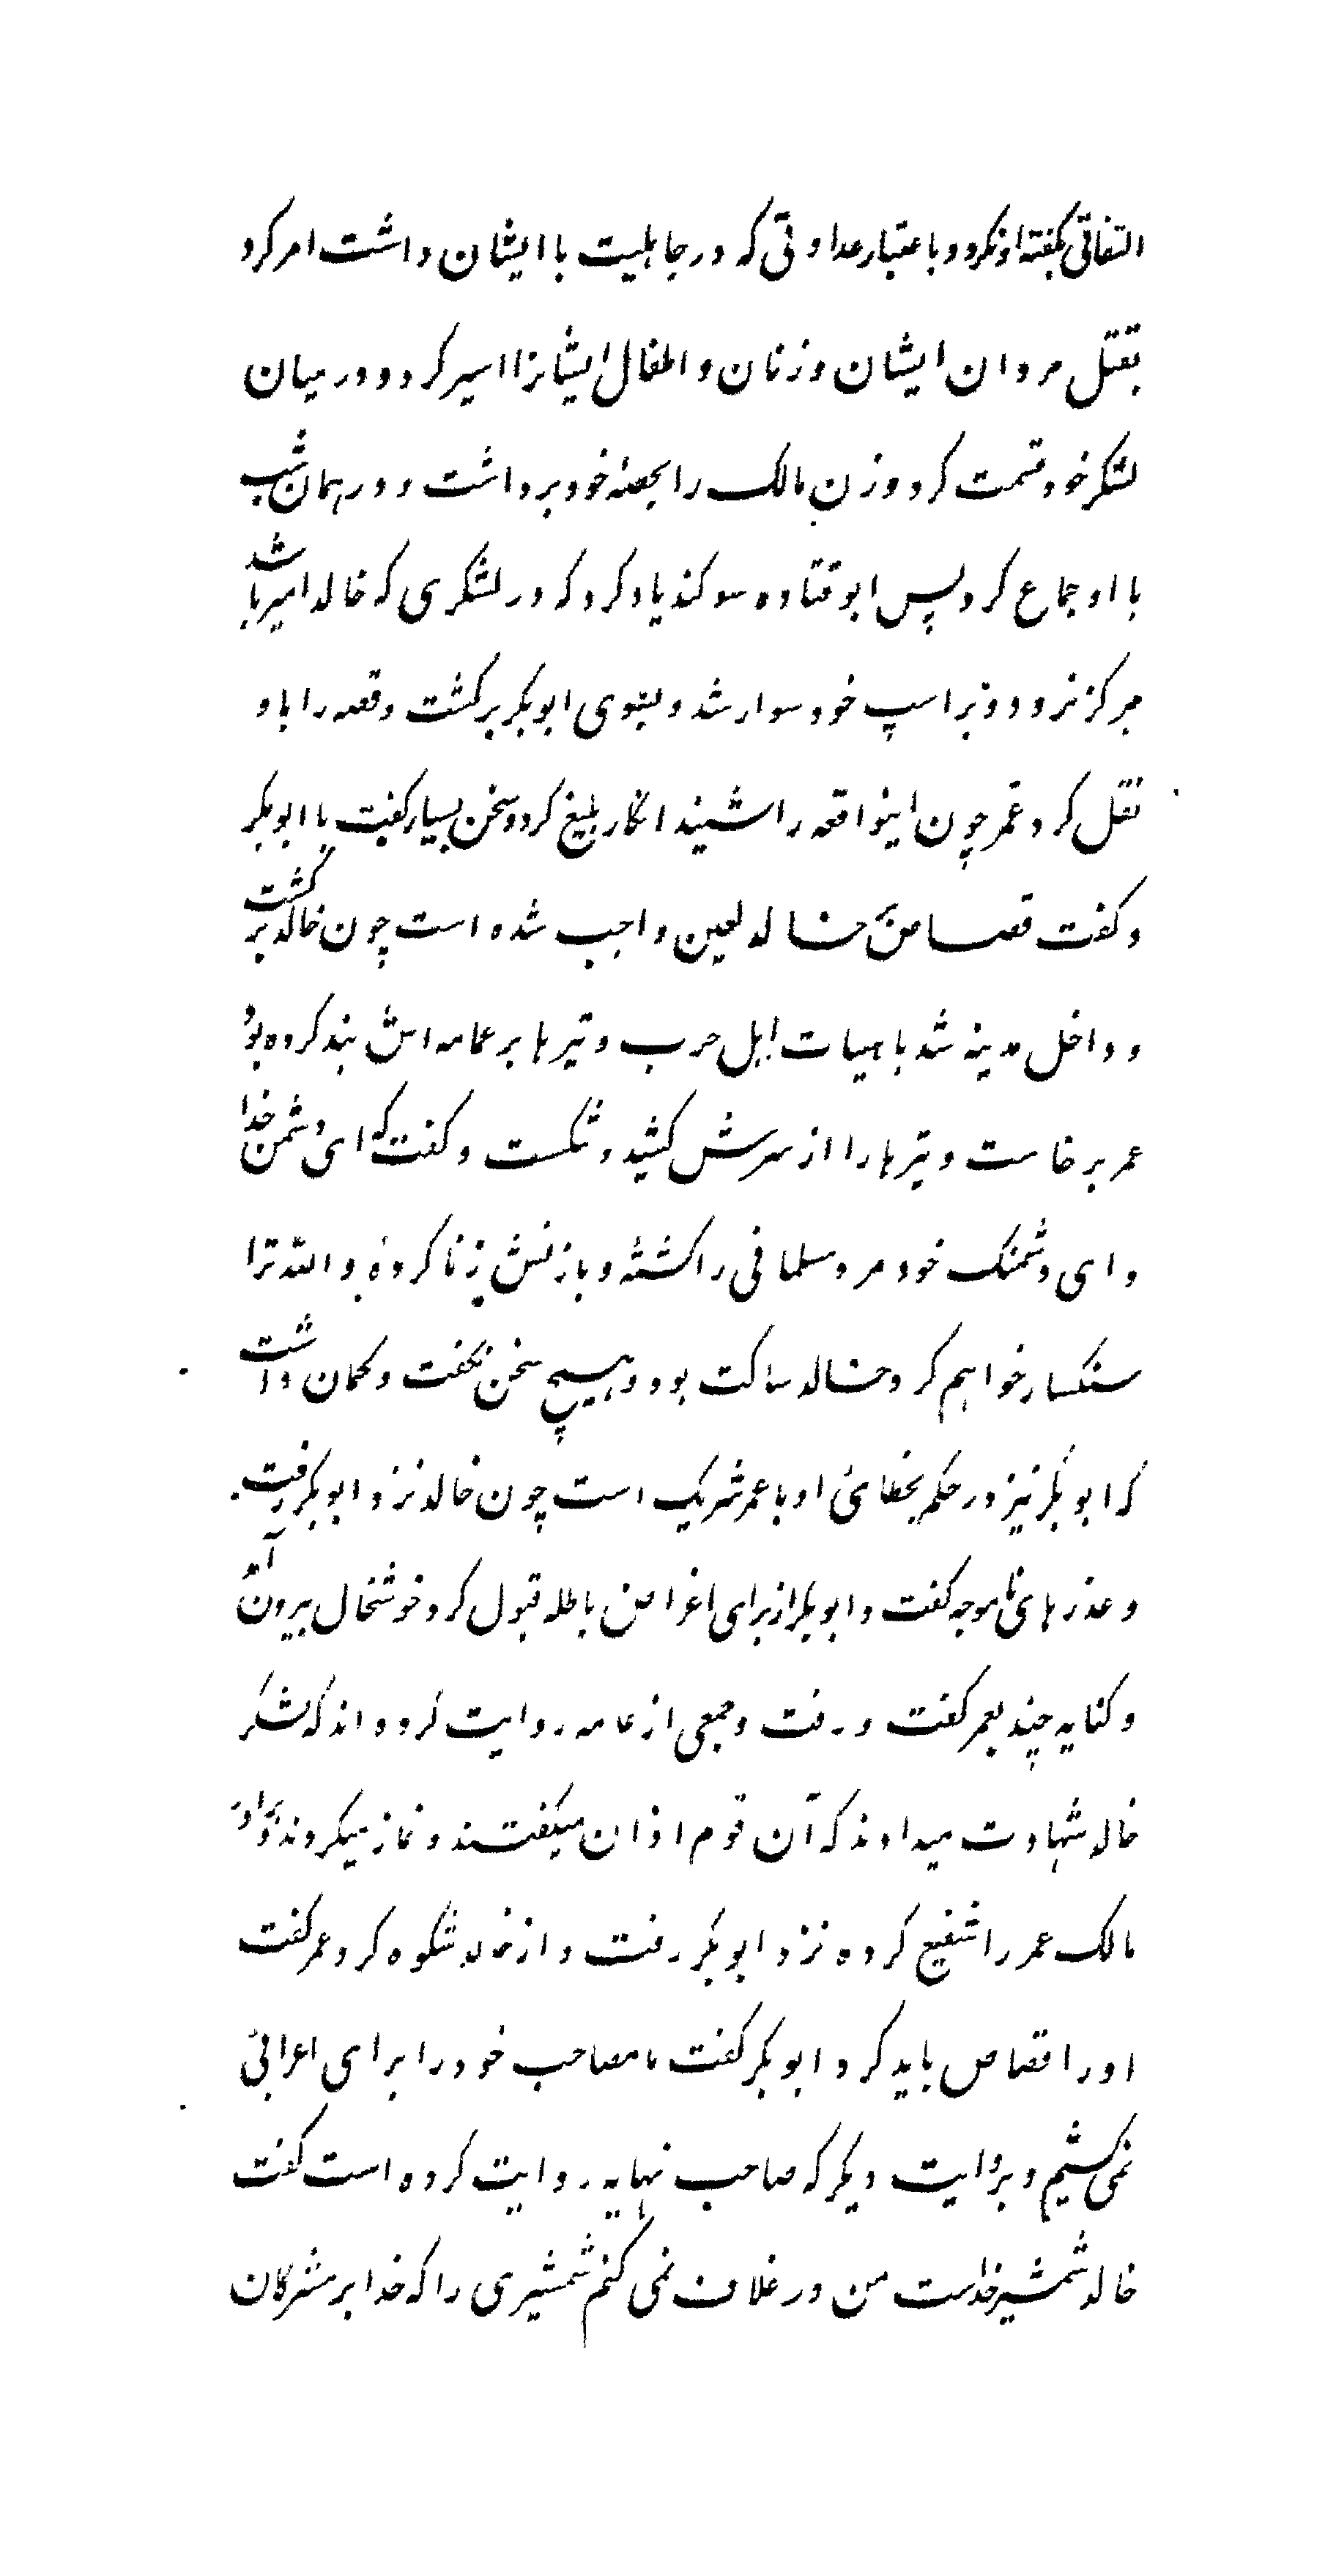 التفاتی بکفته او نکرد و باعتبار عداوتی که در جاهلیت با ایشان داشت امر کرد
بقتل مردان ایشان و زنان و اطفال ایشانرا اسیر کرد و در میان
لشکر خود قسمت کرد و زن مالک را بحصهٔ خود برداشت و در همان شب
با او جماع کرد پس ابو قتاده سوکند یاد کرد که در لشکری که خالد امیر باشد
هرکز نرود و بر اسپ خود سوار شد و بسوی ابوبکر برکشت و قصه را باو
نقل کرد عمر چون اینواقعه را شنید انکار بلیغ کرد و سخن بسیار کفت با ابوبکر
و کفت قصاص بر خالد لعین واجب شده است چون خالد برکشت
و داخل مدینه شد با هیات اهل حرب و تیرها بر عمامه اش بند کرده بود
عمر برخاست و تیرها را از سرش کشید و شکست و کفت که ای دشمن خدا
و ای دشمنک خود مرد مسلمانی را کشتهٔ و بازنش زنا کردهٔ والله ترا
سنکسار خواهم کرد خالد ساکت بود و هیچ سخن نکفت و کمان داشت
که ابوبکر نیز در حکم بخطای او با عمر شریک است چون خالد نزد ابوبکر رفت
و عذرهای ناموجه کفت و ابوبکر از برای اغراض باطله قبول کرد خوشحال بیرون آمد
و کنایه چند بعمر کفت و رفت و جمعی از عامه روایت کرده اند که لشکر
خالد شهادت میدادند که آن قوم اذان میکفتند و نماز میکردند و برادر
مالک عمر را شفیع کرده نزد ابوبکر رفت و از خالد شکوه کرد عمر کفت
او را قصاص باید کرد ابوبکر کفت ما مصاحب خود را برای اعرابی
نمی کشیم و بروایت دیکر که صاحب نهایه روایت کرده است کفت
خالد شمشیر خداست من در غلاف نمی کنم شمشیری را که خدا بر مشرکان